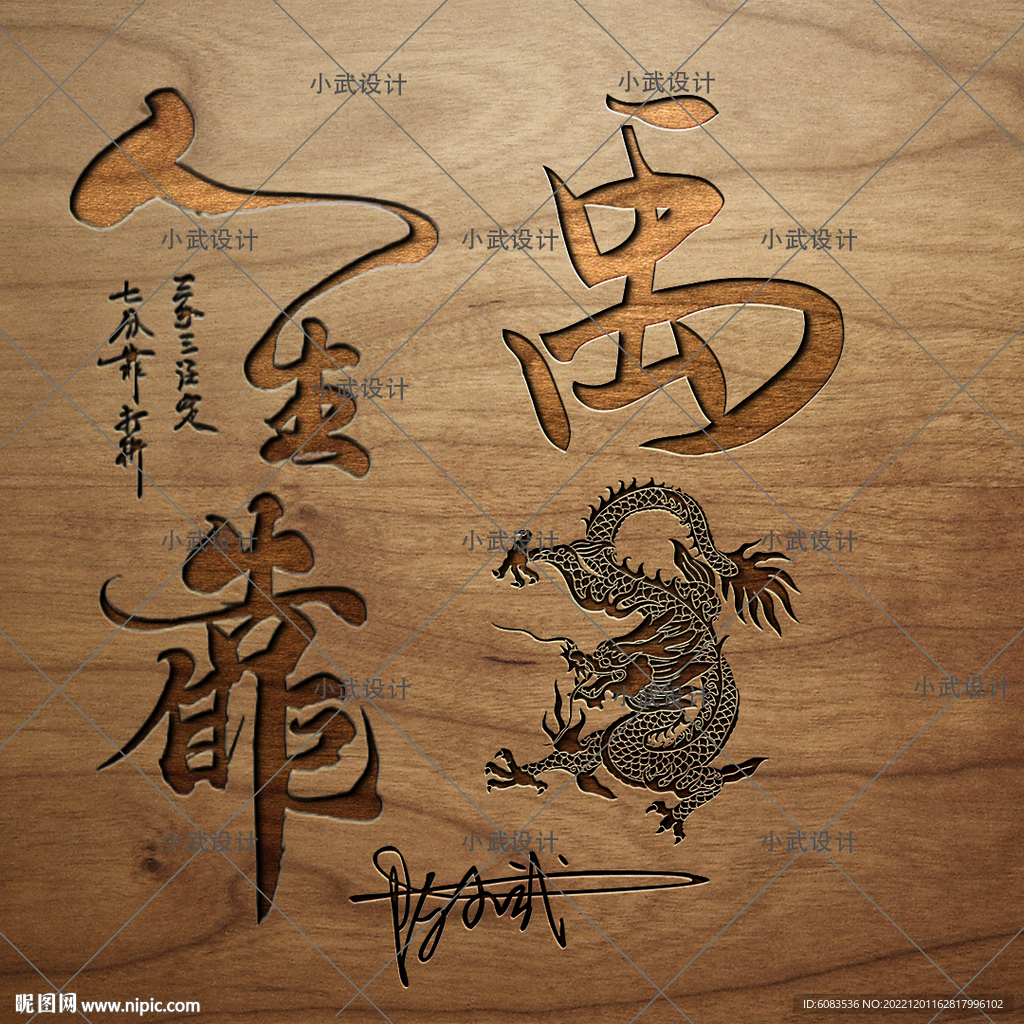 小武设计 小武设计
禹
人生
小武设计 小武设计 小武设计
三分天注定
七分靠打拼
小武设计
小武设计 小武设计 小武设计
小武设计 小武设计 小武设计
小武设计 小武设计 小武设计
昵图网 www.nipic.com
ID:6083536 NO:20221201162817996102